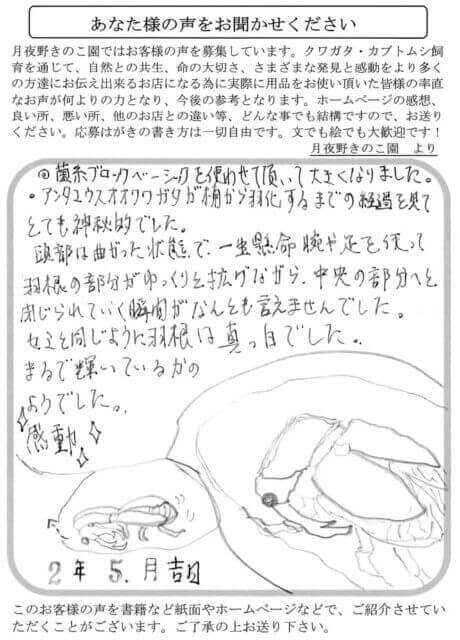 あなた様の声をお聞かせください
月夜野きのこ園ではお客様の声を募集しています。クワガタ・カブトムシ飼
育を通じて、自然との共生、命の大切さ、さまざまな発見と感動をより多く
の方達にお伝え出来るお店になる為に実際に用品をお使い頂いた皆様の率直
なお声が何よりの力となり、今後の参考となります。ホームページの感想、
良い所、悪い所、他のお店との違い等、どんな事でも結構ですので、お送り
ください。応募はがきの書き方は一切自由です。文でも絵でも大歓迎です！
月夜野きのこ園　より
菌糸ブロックベーシックを使わせて頂いて大きくなりました。
・アンタエウスオオクワガタが蛹から羽化するまでの経過を見て
とても神秘的でした。
頭部は曲がった状態で、一生懸命腕や足を使って
羽根の部分がゆっくりと拡げながら、中央の部分へと
閉じられていく瞬間がなんとも言えませんでした。
セミと同じように羽根は真っ白でした。
まるで輝いているかの
ようでした。
感動
2年5.月吉日
このお客様の声を書籍など紙面やホームページなどで、ご紹介させてい
ただくことがございます。ご了承の上お送り下さい。